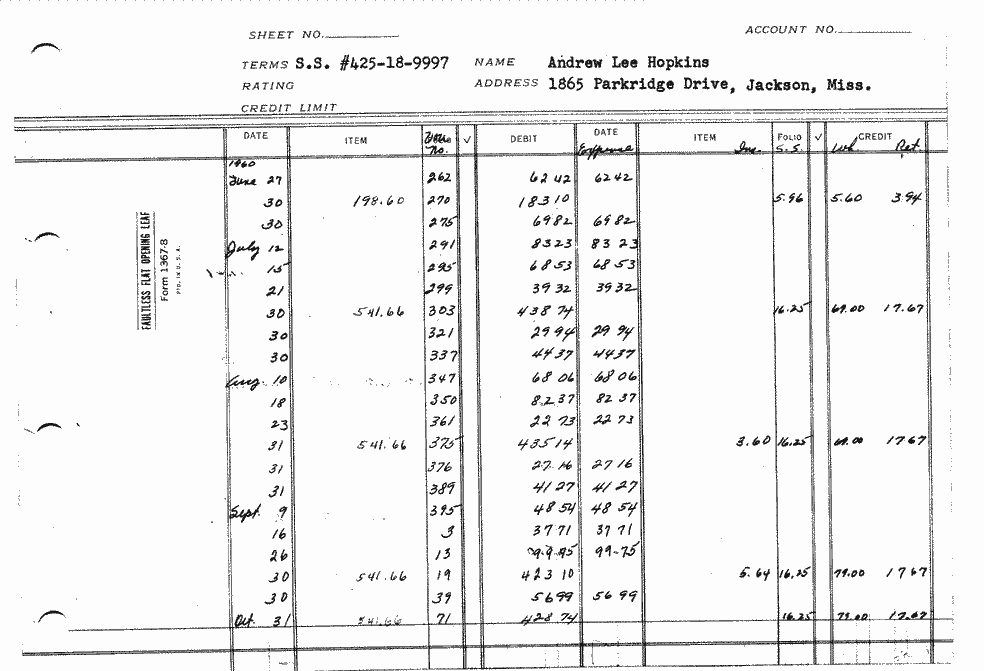 SHEET NO.
ACCOUNT NO.
TERMS S.S. #425-18-9997 NAME Andrew Lee Hopkins
RATING ADDRESS 1865 Parkridge Drive, Jackson, Miss.
CREDIT LIMIT
DATE ITEM No. √ DEBIT DATE Expense ITEM Ins. FOLIO S.S. √ CREDIT Wh. Ret.
1960
June 27 262 62 42 62 42
30 198.60 270 183 10 5.96 5.60 3.94
30 275 69 82 69 82
July 12 291 83 23 83 23
15 295 68 53 68 53
21 299 39 32 39 32
30 541.66 303 438 74 16.25 69.00 17.67
30 321 29 94 29 94
30 337 44 37 44 37
Aug. 10 347 68 06 68 06
18 350 82 37 82 37
23 361 22 73 22 73
31 541.66 375 435 14 3.60 16.25 69.00 17 67
31 376 27 16 27 16
31 389 41 27 41 27
Sept. 9 395 48 54 48 54
16 3 37 71 37 71
26 13 99.75 99.75
30 541.66 19 423 10 5.64 16.25 79.00 17 67
30 39 56 99 56 99
Oct. 31 541.66 71 428 74 16.25 79.00 17.67
FAULTLESS FLAT OPENING LEAF
Form 1367-8
PTD. IN U.S.A.